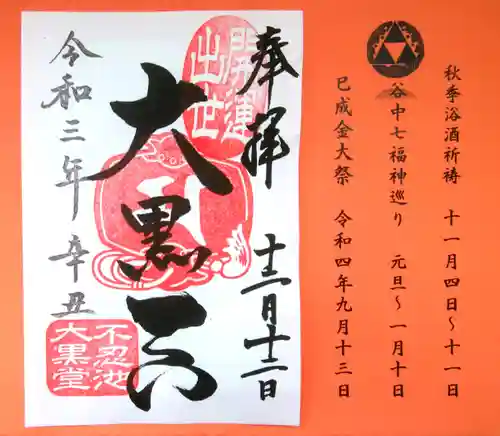 秋季浴酒祈祷 十一月四日～十一日
谷中七福神巡り 元旦～一月十日
巳成金大祭 令和四年九月十三日
奉拝 十二月十二日
開運
出世
大黒天
令和三年辛丑
不忍池
大黒堂